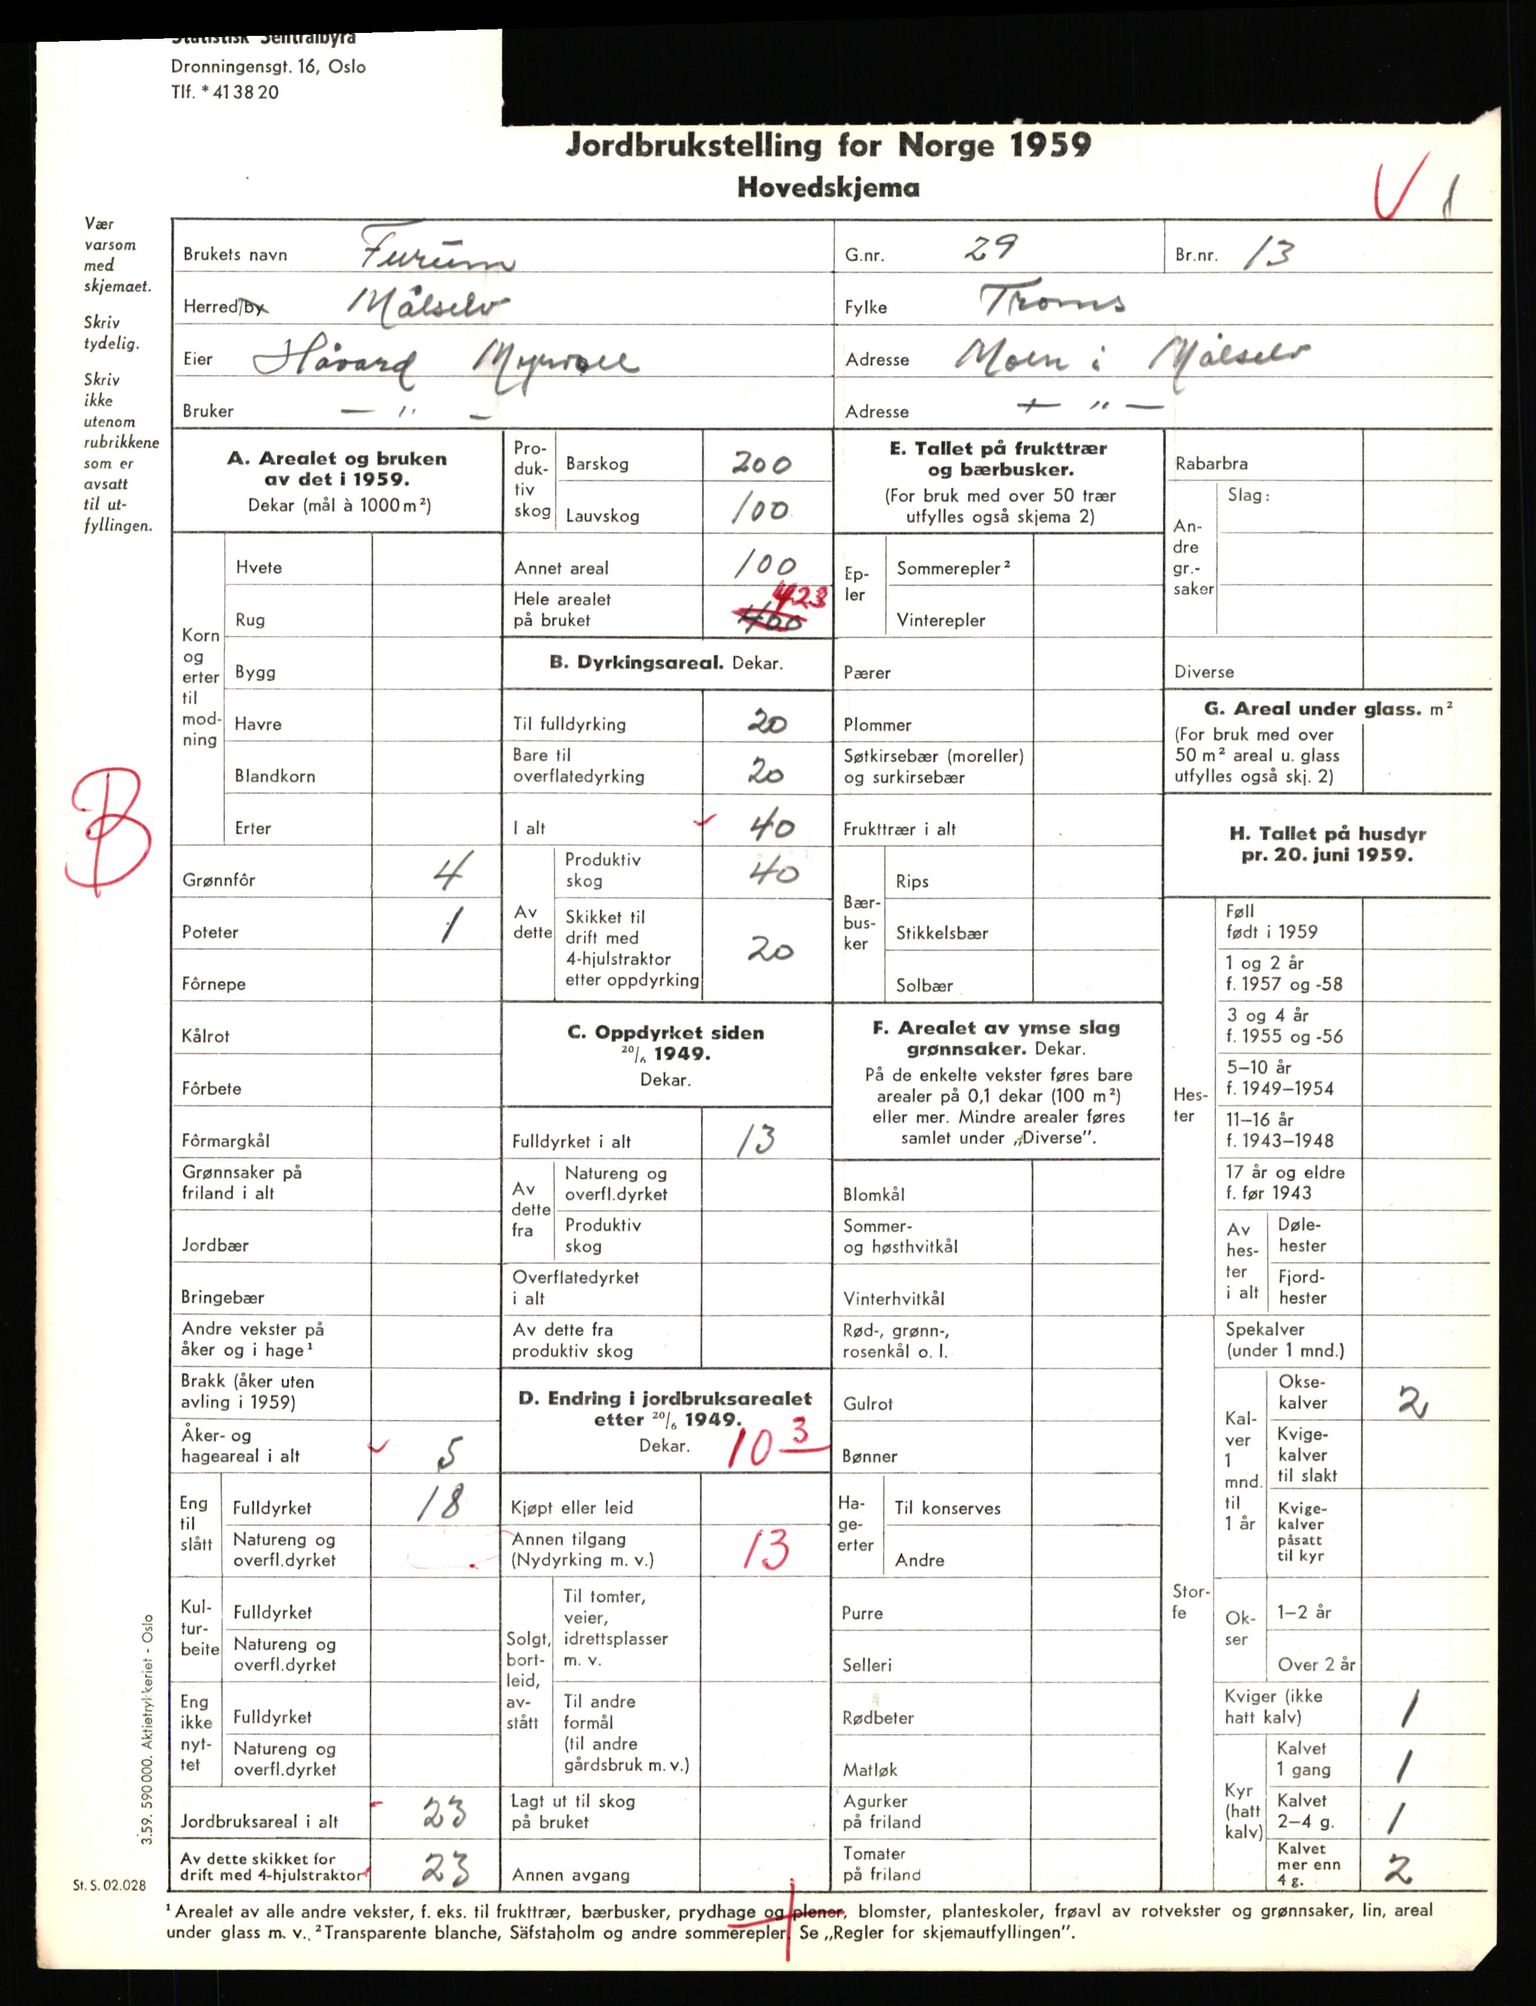 Statistisk Sentralbyrå
Dronningensgt. 16, Oslo
Tlf. * 41 38 20
Jordbrukstelling for Norge 1959
Hovedskjema
V
Vær
varsom
med
skjemaet.
Skriv
tydelig.
Skriv
ikke
utenom
rubrikkene
som er
avsatt
til ut-
fyllingen.
Brukets navn Furum G.nr. 29 Br.nr. 13
Herred/by Målselv Fylke Troms
Eier Håvard Myrvoll Adresse Moen i Målselv
Bruker — " — Adresse — " —
A. Arealet og bruken
av det i 1959.
Dekar (mål à 1000 m²)
Korn
og
erter
til
mod-
ning
Hvete
Rug
Bygg
Havre
Blandkorn
Erter
B
Grønnfôr 4
Poteter 1
Fôrnepe
Kålrot
Fôrbete
Fôrmargkål
Grønnsaker på
friland i alt
Jordbær
Bringebær
Andre vekster på
åker og i hage¹
Brakk (åker uten
avling i 1959)
Åker- og
hageareal i alt 5
Eng
til
slått
Fulldyrket 18
Natureng og
overfl.dyrket
Kul-
tur-
beite
Fulldyrket
Natureng og
overfl.dyrket
Eng
ikke
nyt-
tet
Fulldyrket
Natureng og
overfl.dyrket
Jordbruksareal i alt 23
Av dette skikket for
drift med 4-hjulstraktor 23
Pro-
duk-
tiv
skog
Barskog 200
Lauvskog 100
Annet areal 100
Hele arealet
på bruket 400 423
B. Dyrkingsareal. Dekar.
Til fulldyrking 20
Bare til
overflatedyrking 20
I alt 40
Av
dette
Produktiv
skog 40
Skikket til
drift med
4-hjulstraktor
etter oppdyrking 20
C. Oppdyrket siden
20/6 1949.
Dekar.
Fulldyrket i alt 13
Av
dette
fra
Natureng og
overfl.dyrket
Produktiv
skog
Overflatedyrket
i alt
Av dette fra
produktiv skog
D. Endring i jordbruksarealet
etter 20/6 1949.
Dekar. 10 3
Kjøpt eller leid
Annen tilgang
(Nydyrking m. v.) 13
Solgt,
bort-
leid,
av-
stått
Til tomter,
veier,
idrettsplasser
m. v.
Til andre
formål
(til andre
gårdsbruk m. v.)
Lagt ut til skog
på bruket
Annen avgang
E. Tallet på frukttrær
og bærbusker.
(For bruk med over 50 trær
utfylles også skjema 2)
Ep-
ler
Sommerepler²
Vinterepler
Pærer
Plommer
Søtkirsebær (moreller)
og surkirsebær
Frukttrær i alt
Bær-
bus-
ker
Rips
Stikkelsbær
Solbær
F. Arealet av ymse slag
grønnsaker. Dekar.
På de enkelte vekster føres bare
arealer på 0,1 dekar (100 m²)
eller mer. Mindre arealer føres
samlet under „Diverse”.
Blomkål
Sommer-
og høsthvitkål
Vinterhvitkål
Rød-, grønn-,
rosenkål o. l.
Gulrot
Bønner
Ha-
ge-
erter
Til konserves
Andre
Purre
Selleri
Rødbeter
Matløk
Agurker
på friland
Tomater
på friland
Rabarbra
An-
dre
gr.-
saker
Slag:
Diverse
G. Areal under glass. m²
(For bruk med over
50 m² areal u. glass
utfylles også skj. 2)
H. Tallet på husdyr
pr. 20. juni 1959.
Hes-
ter
Føll
født i 1959
1 og 2 år
f. 1957 og -58
3 og 4 år
f. 1955 og -56
5–10 år
f. 1949–1954
11–16 år
f. 1943–1948
17 år og eldre
f. før 1943
Av
hes-
ter
i alt
Døle-
hester
Fjord-
hester
Stor-
fe
Spekalver
(under 1 mnd.)
Kal-
ver
1
mnd.
til
1 år
Okse-
kalver 2
Kvige-
kalver
til slakt
Kvige-
kalver
påsatt
til kyr
Ok-
ser
1–2 år
Over 2 år
Kviger (ikke
hatt kalv) 1
Kyr
(hatt
kalv)
Kalvet
1 gang 1
Kalvet
2–4 g. 1
Kalvet
mer enn
4 g. 2
3.59. 590 000. Aktietrykkeriet - Oslo
St. S. 02.028
¹ Arealet av alle andre vekster, f. eks. til frukttrær, bærbusker, prydhage og plener, blomster, planteskoler, frøavl av rotvekster og grønnsaker, lin, areal
under glass m. v. ² Transparente blanche, Säfstaholm og andre sommerepler. Se „Regler for skjemautfyllingen”.